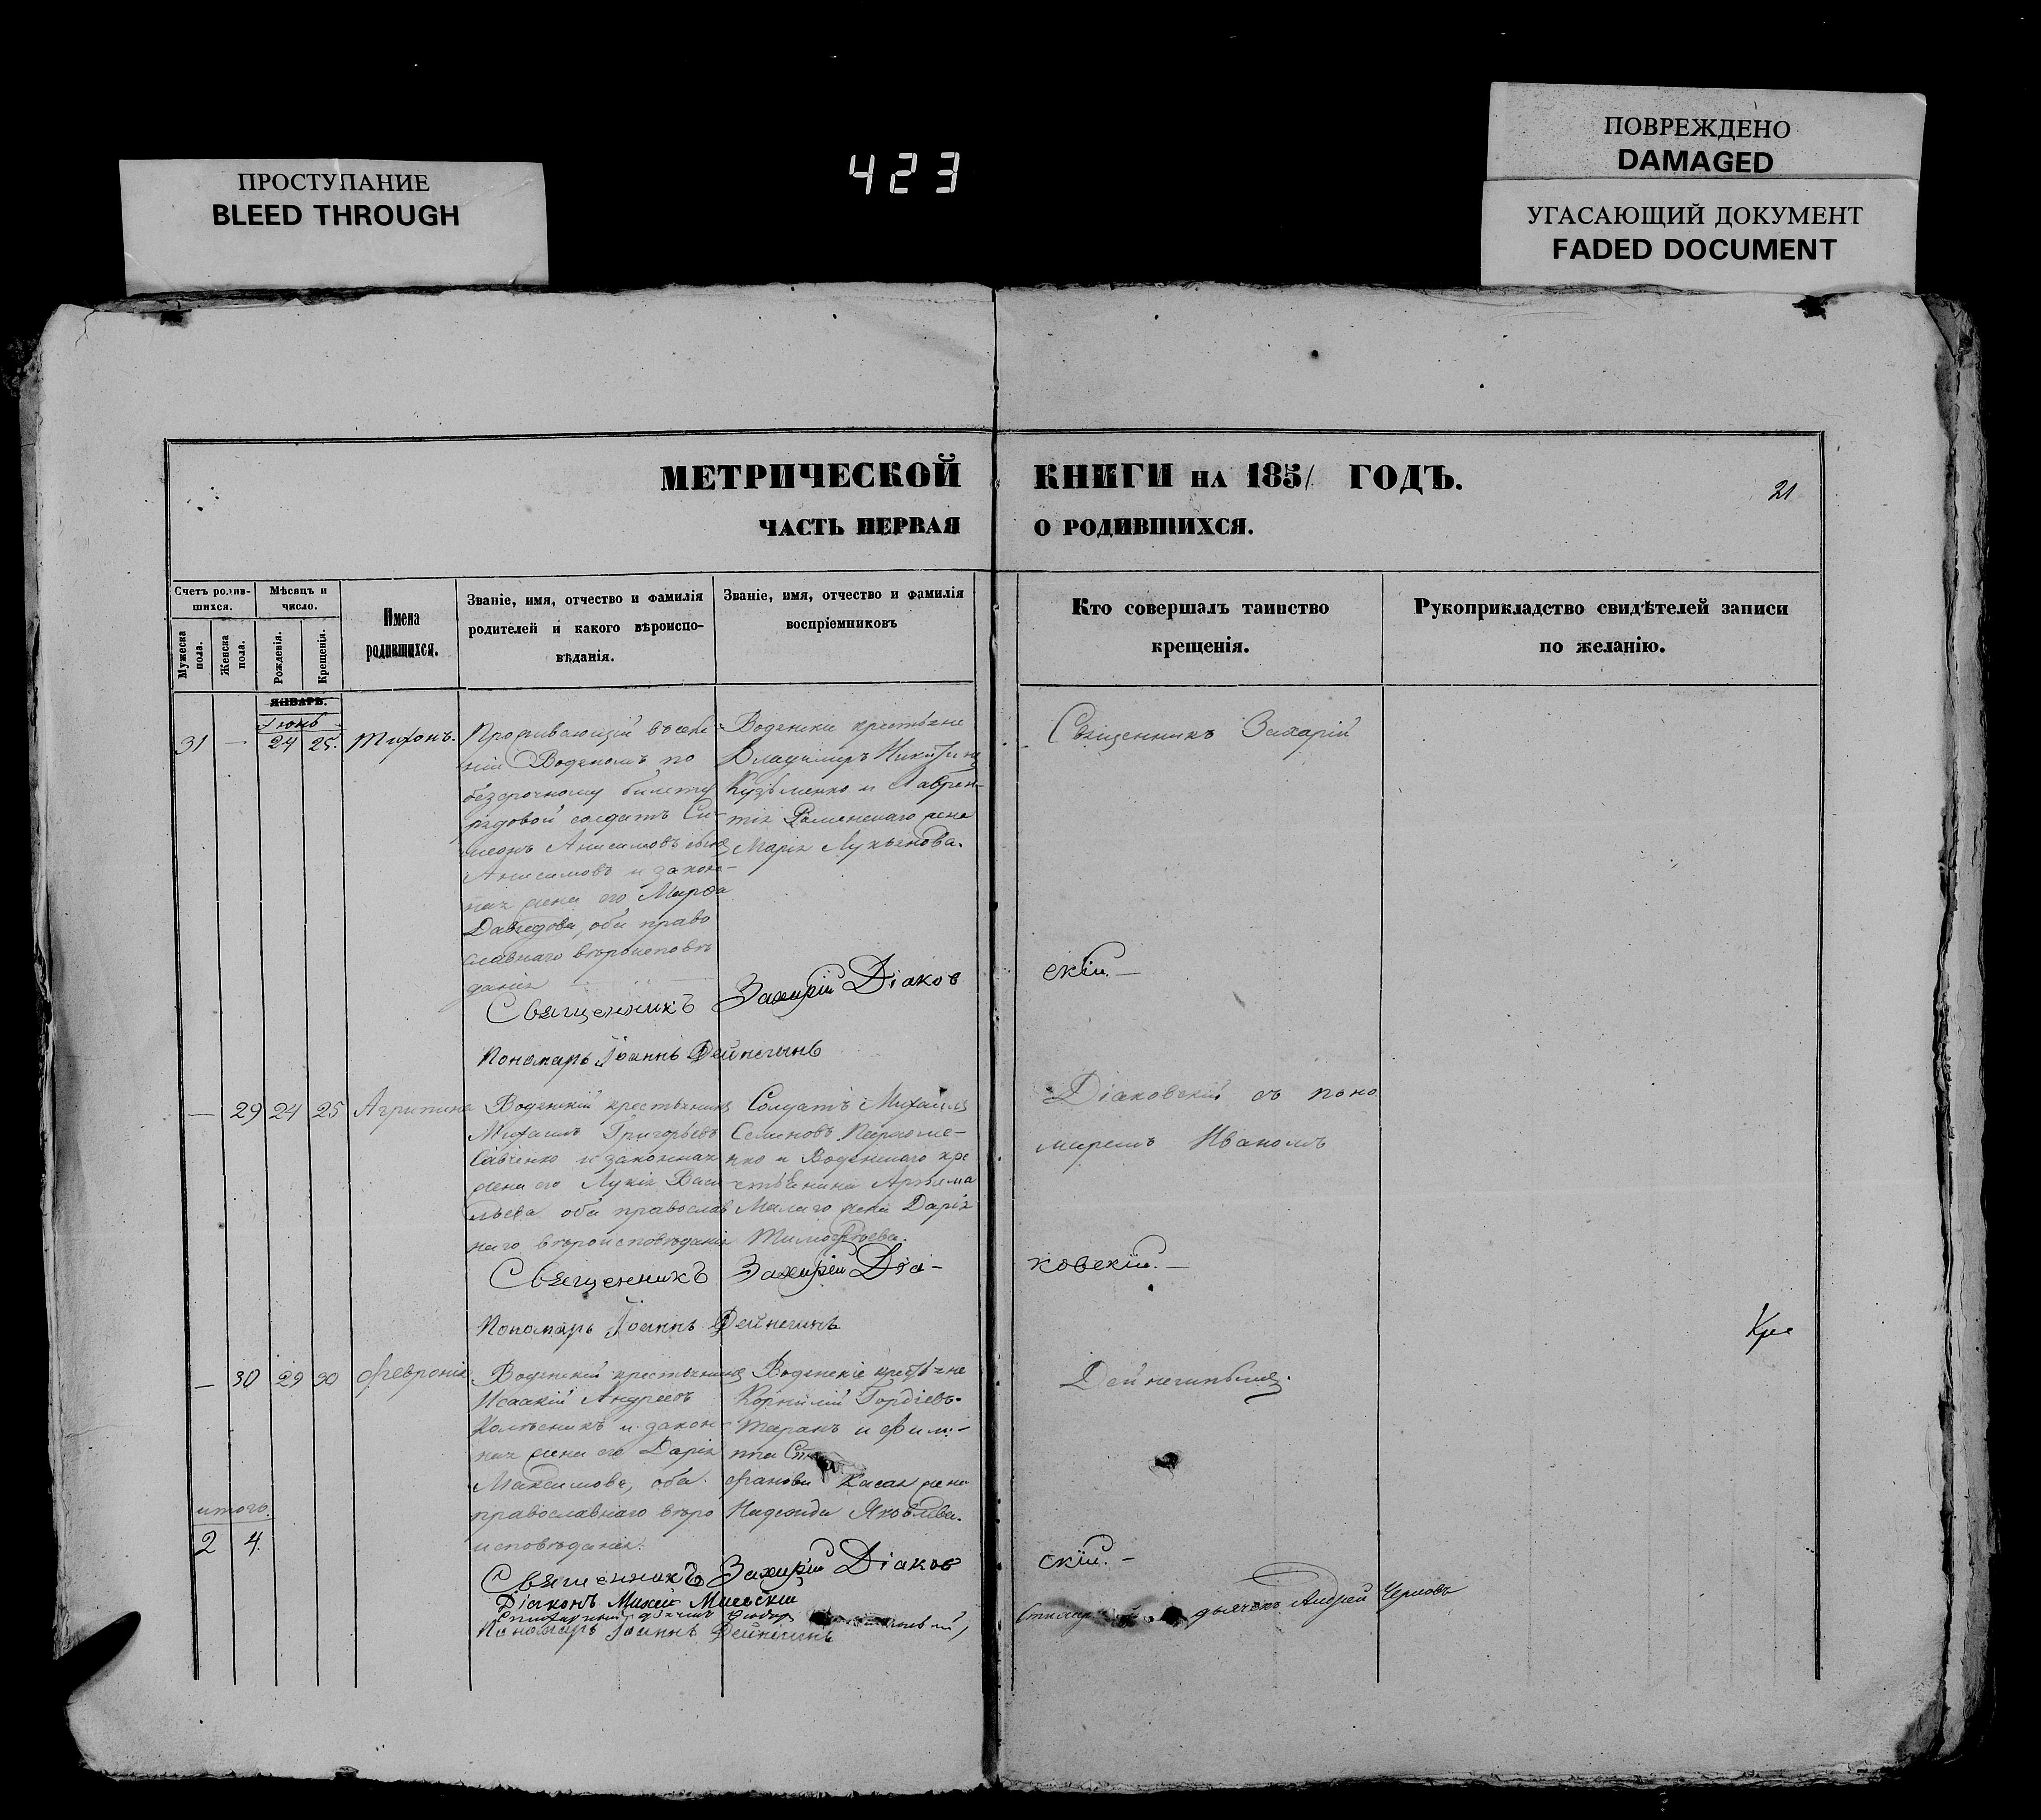 ПРОСТУПАНИЕ
BLEED THROUGH
423
ПОВРЕЖДЕНО
DAMAGED
УГАСАЮЩИЙ ДОКУМЕНТ
FADED DOCUMENT
МЕТРИЧЕСКОЙ КНИГИ НА 1851 ГОДЪ.
21
ЧАСТЬ ПЕРВАЯ О РОДИВШИХСЯ.
Счетъ родив-
шихся.
Мужеска пола.
Женска пола.
Мѣсяцъ и
число.
Рожденія.
Крещенія.
Имена
родившихся.
Званіе, имя, отчество и фамилія
родителей и какого вѣроиспо-
вѣданія.
Званіе, имя, отчество и фамилія
воспріемниковъ
Кто совершалъ таинство
крещенія.
Рукоприкладство свидѣтелей записи
по желанію.
ЯНВАРЬ.
Іюнь
31 — 24 25. Тихонъ.
Проживающій въ селе
ніи Водяномъ по
безсрочному билету
рядовой солдатъ Си-
меонъ Анисимовъ сынъ
Анисимовъ и закон-
ная жена его Марфа
Давидова, оба право
славнаго вѣроисповѣ
данія
Водянски крестьяне
Владимиръ Никитинъ
Кузьменко и Лаврен-
тія Роменскаго жена
Марія Лукьянова.
Священникъ Захарій
Священникъ Захарій Діаков
скій.—
Пономарь Іоаннъ Дейнегинъ
— 29 24 25 Агрипина
Водянскій крестьянинъ
Михаилъ Григорьевъ
Савченко и законная
жена его Лукія Васи
льева оба православ
наго вѣроисповѣданія
Солдатъ Михаилъ
Семеновъ Пархоме-
нко и Водянскаго кре
стьянина Артема
Малаго жена Дарія
Тимофѣева.
Діаковскій съ поно
маремъ Иваномъ
Священникъ Захарій Діа-
ковскій.—
Пономарь Іоаннъ Дейнегинъ
— 30 29 30 Февронія
Водянскій крестьянинъ
Исаакій Андреевъ
Колѣсникъ и закон-
ная жена его Дарія
Максимова, оба
православнаго вѣро
исповѣданія.
Водянскіе крестьяне
Корнилій Гордіевъ
Таранъ и Фили-
ппа Сте
фанова Касая жена
Надежда Яковлева.
Дейнегинымъ.
итого.
2 4
Священникъ Захарій Діаков
скій.—
Діаконъ Михей
Пономарь Іоаннъ Дейнегинъ
дьячекъ Андрей Черновъ